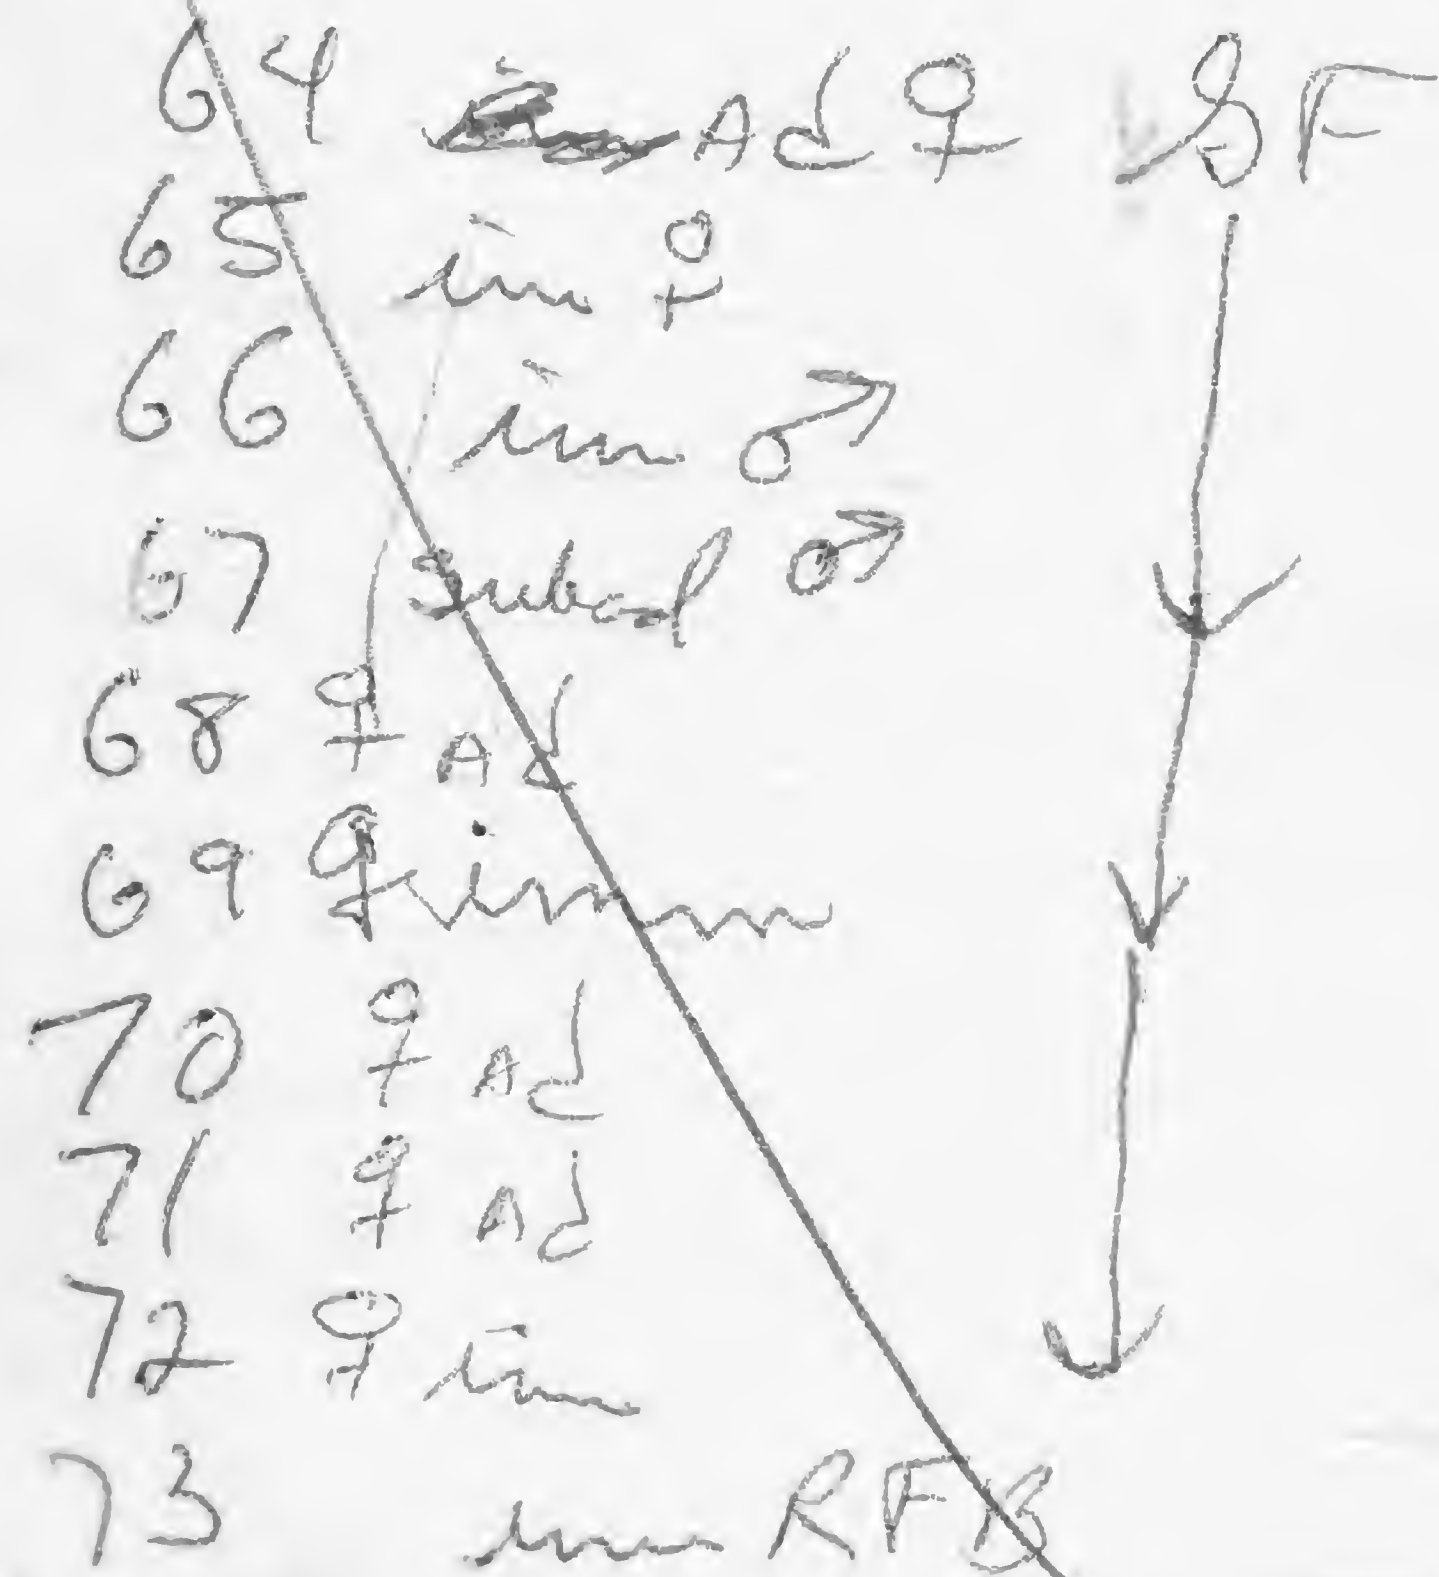 64 Ad ♀ SF
65 im ♀
66 im ♂
67 subad ♂
68 ♀ Ad
69 ♀ imm
70 ♀ Ad
71 ♀ Ad
72 ♀ im
73 imm RFB